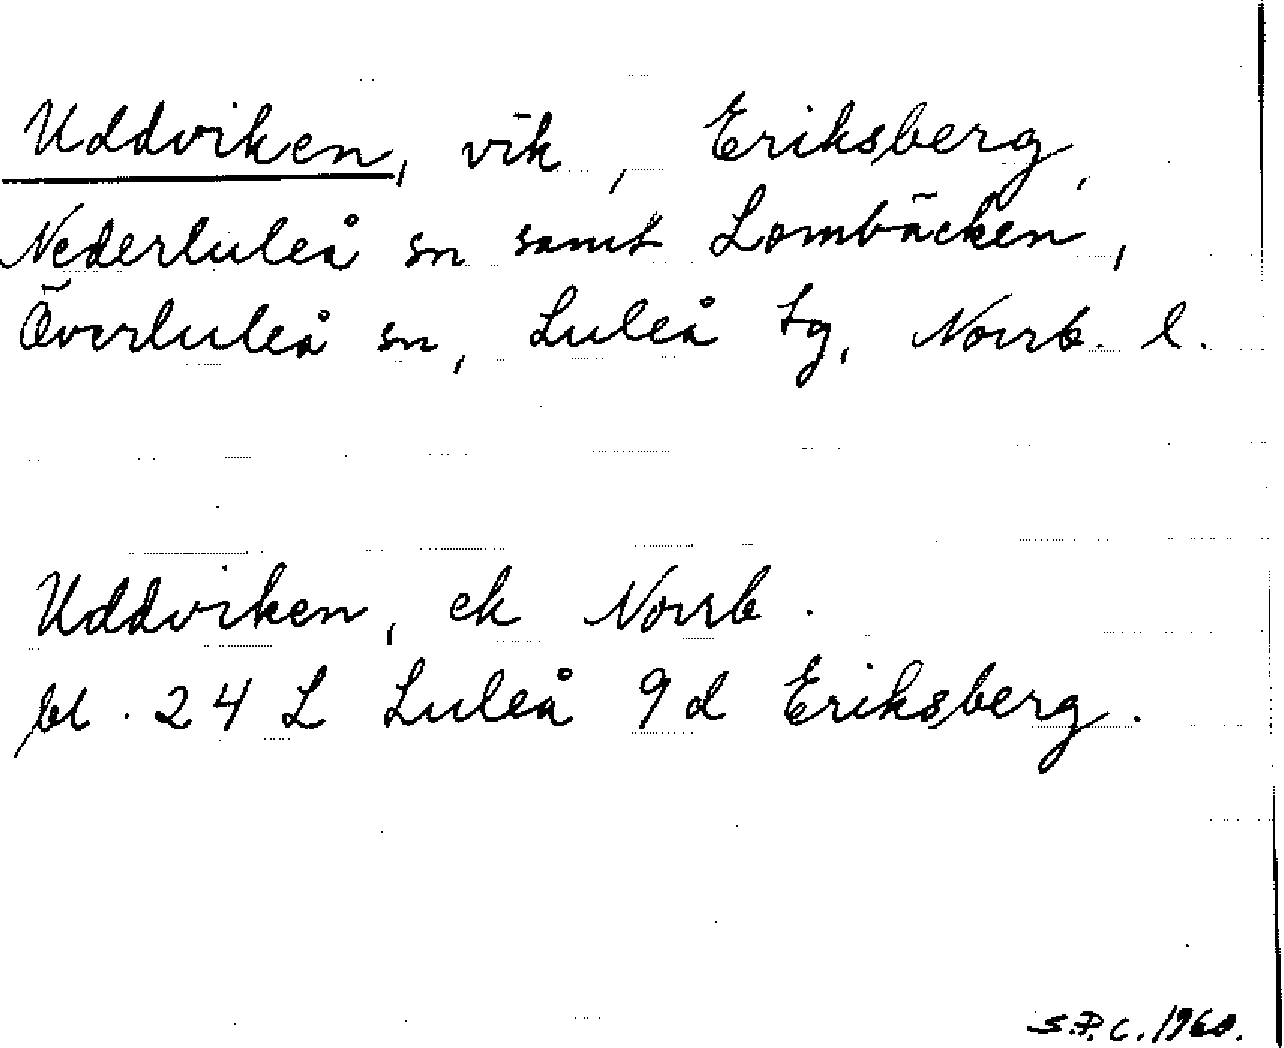 Uddviken, vik, Eriksberg,
Nederluleå sn samt Lombäcken,
Överluleå sn, Luleå tg, Norrb. l.
Uddviken, ek Norrb.
bl. 24 L Luleå 9d Eriksberg.
S.P.C. 1960.